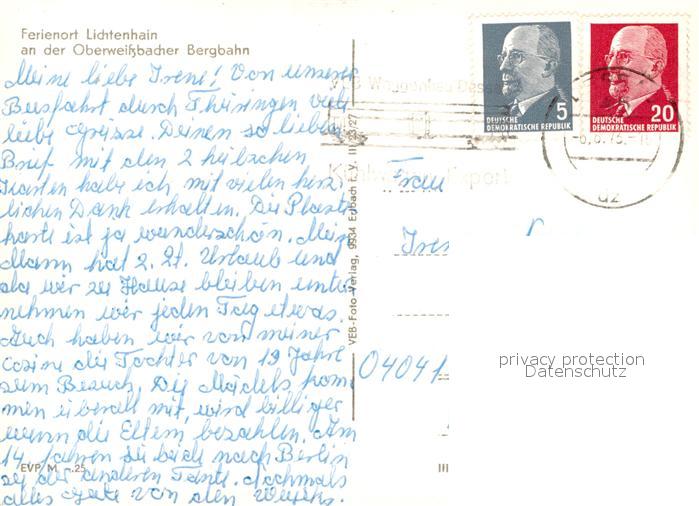 Ferienort Lichtenhain
an der Oberweißbacher Bergbahn
Meine liebe Irene! Von unserer
Busfahrt durch Thüringen viele
liebe Grüsse. Deinen so lieben
Brief mit den 2 hübschen
Karten habe ich mit vielen herz
lichen Dank erhalten. Die Plastik
karte ist ja wunderschön. Mein
Mann hat z. Zt. Urlaub und
da wir zu Hause bleiben unter
nehmen wir jeden Tag etwas.
Auch haben wir von meiner
Cosine die Tochter von 19 Jahre
zum Besuch. Die Mädels kom
men überall mit, wird billiger
wenn die Eltern bezahlen. Am
14. fahren sie beide nach Berlin
zu der anderen Tante. Nochmals
alles Gute von den
EVP M -.25
VEB-Foto-Verlag, 9934 Erlbach i. V. III/23/27
Waggonbau Dessau
Export
5
DEUTSCHE
DEMOKRATISCHE REPUBLIK
20
DEUTSCHE
DEMOKRATISCHE REPUBLIK
dz
Frau
04041
privacy protection
Datenschutz